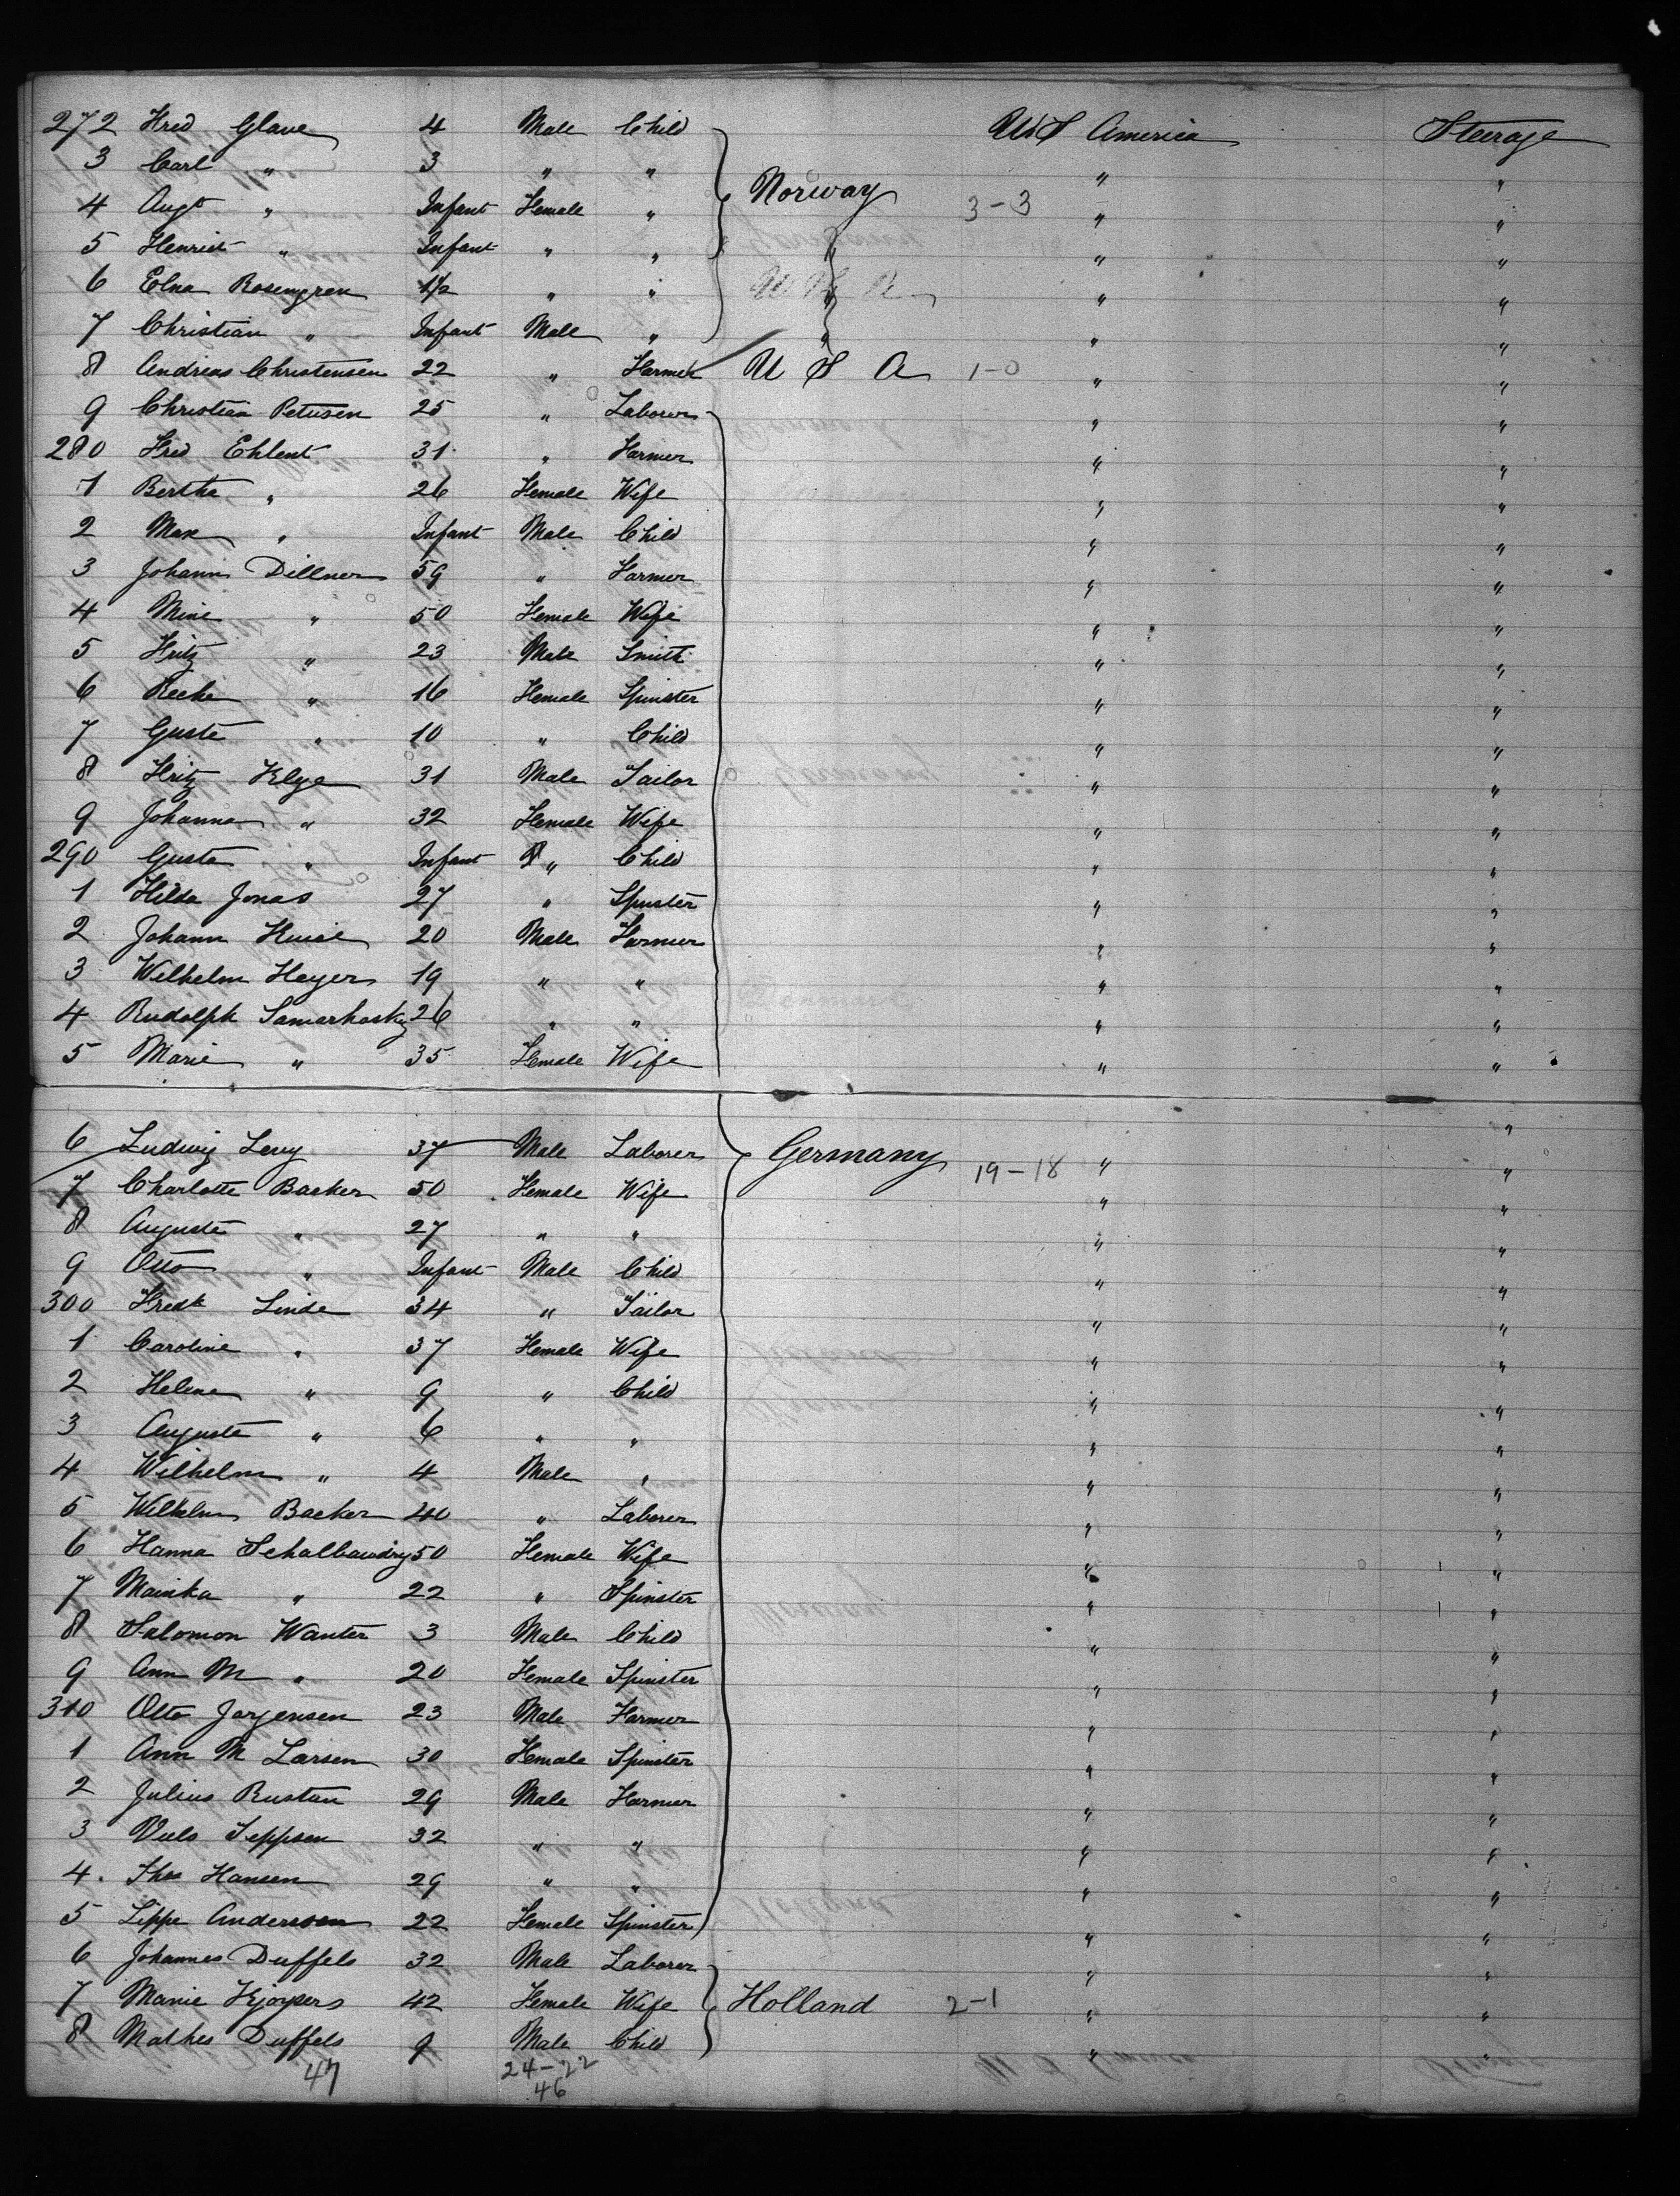 272 Fred Glave 4 Male Child U S America Steerage
3 Carl " 3 " " " "
4 Augt " Infant Female " Norway 3-3 " "
5 Henriet " Infant " " " " "
6 Edna Rosengren 1/2 " " " " "
7 Christian " Infant Male " " " "
8 Andreas Christensen 22 " Farmer U S A 1-0 " "
9 Christian Petersen 25 " Laborer " "
280 Fred Ehlent 31 " Farmer " "
1 Bertha " 26 Female Wife " "
2 Max " Infant Male Child " "
3 Johann Dillner 59 " Farmer " "
4 Mine " 50 Female Wife " "
5 Fritz " 23 Male Smith " "
6 " 16 Female Spinster " "
7 Guste " 10 " Child " "
8 Fritz Klye 31 Male Tailor " "
9 Johanna " 32 Female Wife " "
290 Gusta " Infant " Child " "
1 Hilda Jonas 27 " Spinster " "
2 Johann 20 Male Farmer " "
3 Wilhelm Heyer 19 " " " "
4 Rudolph Samarhosky 26 " " " "
5 Marie " 35 Female Wife " "
6 Ludwig Levy 37 Male Laborer Germany 19-18 " "
7 Charlotte Backer 50 Female Wife " "
8 Auguste " 27 " " " "
9 Otto " Infant Male Child " "
300 Fredk Linde 34 " Tailor " "
1 Caroline " 37 Female Wife " "
2 Helene " 9 " Child " "
3 Auguste " 6 " " " "
4 Wilhelm " 4 Male " " "
5 Wilhelm Backer 40 " Laborer " "
6 Hanna Schalbowdry 50 Female Wife " "
7 Mainka " 22 " Spinster " "
8 Salomon Wanter 3 Male Child " "
9 Ann M " 20 Female Spinster " "
310 Otto Jorgensen 23 Male Farmer " "
1 Ann M Larsen 30 Female Spinster " "
2 Julius Rustan 29 Male Farmer " "
3 Jeppsen 32 " " " "
4. Thos Hansen 29 " " " "
5 Lippe Anderson 22 Female Spinster " "
6 Johannes Duffels 32 Male Laborer " "
7 Marie Kjorpers 42 Female Wife Holland 2-1 " "
8 Mathes Duffels 9 Male Child " "
47 24-22
46